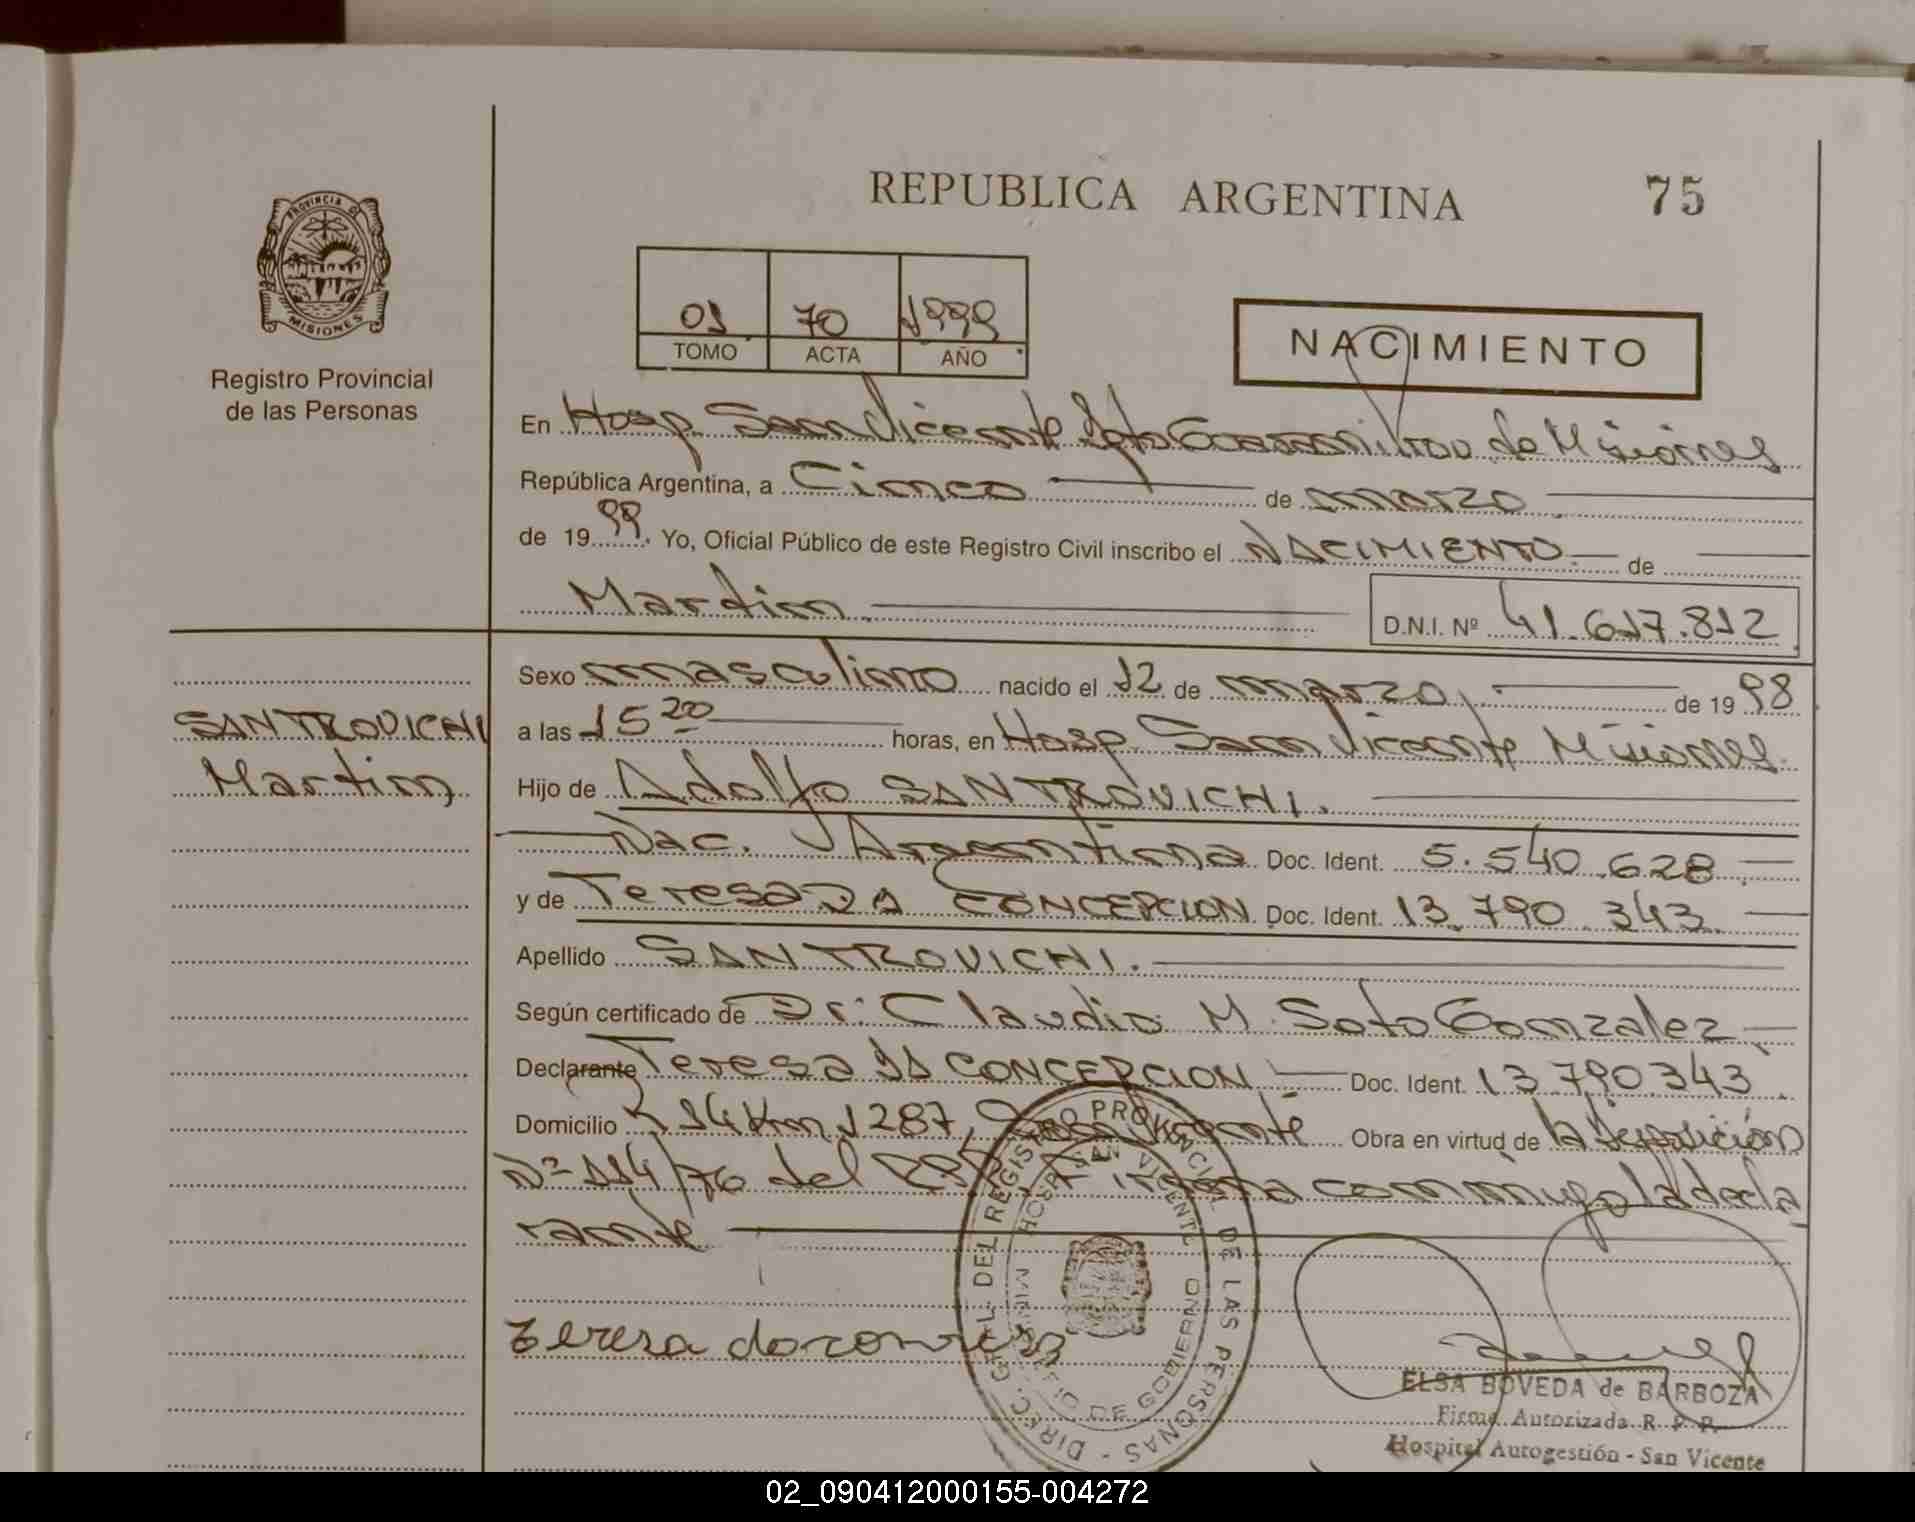 REPUBLICA ARGENTINA
75
PROVINCIA DE
MISIONES
Registro Provincial
de las Personas
01 70 1999
TOMO ACTA AÑO
NACIMIENTO
En Hosp. San Vicente Dpto Guaraní Prov. de Misiones
República Argentina, a Cinco de marzo
de 1999. Yo, Oficial Público de este Registro Civil inscribo el NACIMIENTO de
Martin
D.N.I. Nº 41.617.812
SANTROVICHI
Martin
Sexo masculino nacido el 12 de marzo de 1998
a las 15 20 horas, en Hosp. San Vicente Misiones.
Hijo de Adolfo SANTROVICHI.
Nac. Argentina Doc. Ident. 5.540.628
y de Teresa DA CONCEPCION Doc. Ident. 13.790.343
Apellido SANTROVICHI.
Según certificado de Dr: Claudio M. Soto Gonzalez
Declarante Teresa DA CONCEPCION Doc. Ident. 13790343
Domicilio R 14 Km 1287, San Vicente Obra en virtud de la Disposición
Nº 114/76 del RPP. Firma conmigo la decla
rante
Teresa
DIREC. GRAL. DEL REGISTRO PROVINCIAL DE LAS PERSONAS -
HOSP. SAN VICENTE
MINISTERIO DE GOBIERNO
ELSA BOVEDA de BARBOZA
Firma Autorizada R. P. P.
Hospital Autogestión - San Vicente
02_090412000155-004272